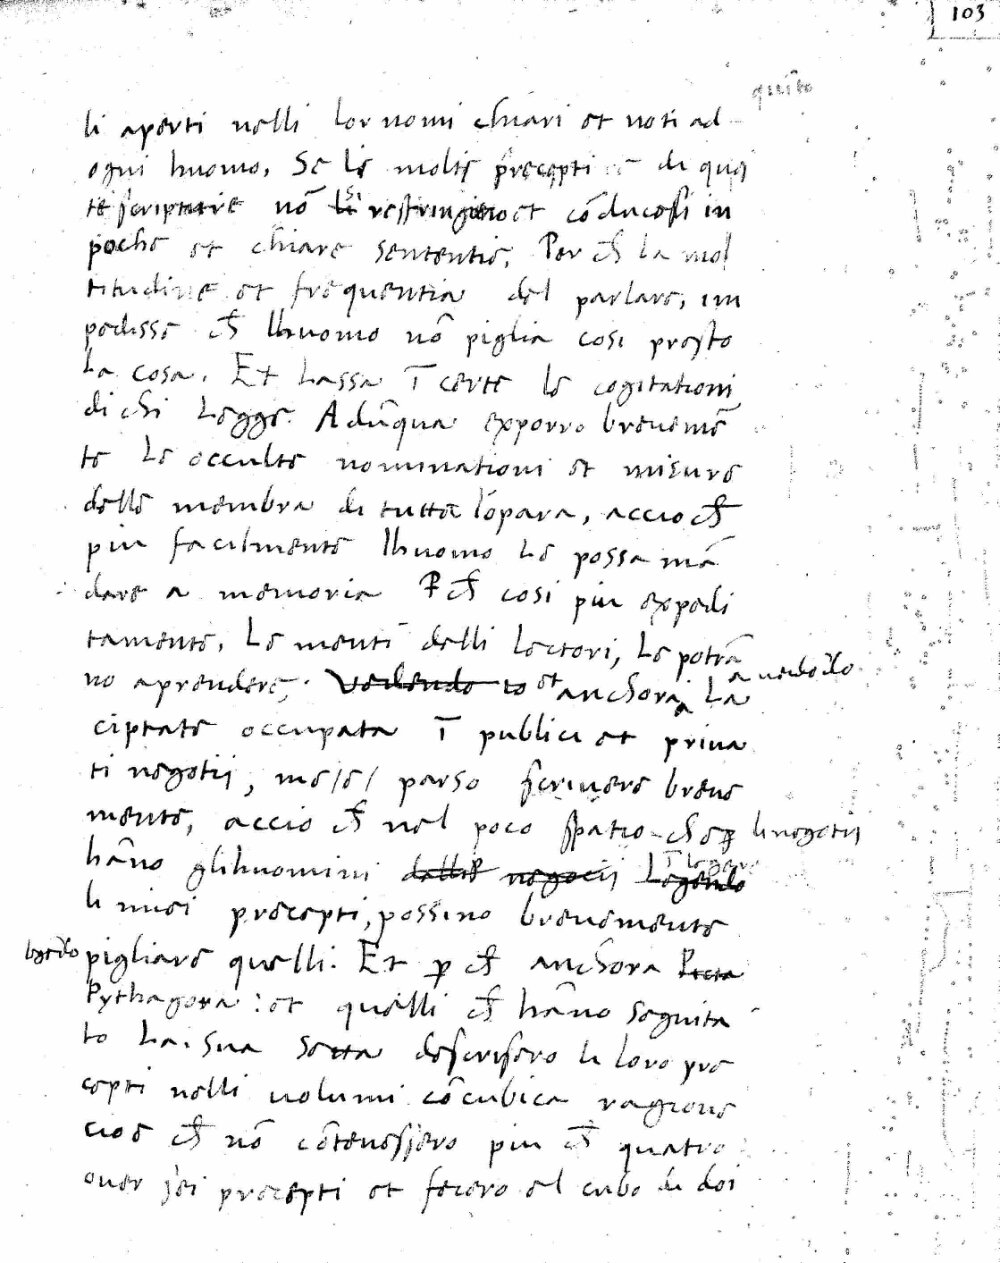 103
quinto
li aperti nelli lor nomi chiari et noti ad
ogni huomo, Se le molte precepti di que
te scripture nō si restringino et cōducosi in
poche et chiare sententie, Per ch̄ la mol
titudine et frequentia del parlare, im
pedisse ch̄ lhuomo nō piglia cosi presto
la cosa. Et lassa ī certe le cogitationi
di chi legge. Adūqua exporro breuemē
te le occulte nominationi et misure
delle membra di tutta lopara, accio ch̄
piu facilmente lhuomo le possa mā
dare a memoria P ch̄ cosi piu expedi
tamente, le menti delli lectori, le potrā
no aprendere, Vedendo io et anchora la
a uedēdo
ciptate occupata ī publici et priua
ti negotij, me /e/ parso scriuere breue
mente, accio ch̄ nel poco spatio ch̄ p li negotij
hāno glihuomini delli negocij Legendo
li miei precepti, possino breuemente
legēdo pigliare quelli. Et p ch̄ anchora Picta
Pythagora: et quelli ch̄ hāno seguita
to la sua secta descrisero li loro pre
cepti nelli uolumi cō cubica ragione
cioe ch̄ nō cōtenessero piu ch̄ quatro
ouer sei precepti et fecero el cubo di doi